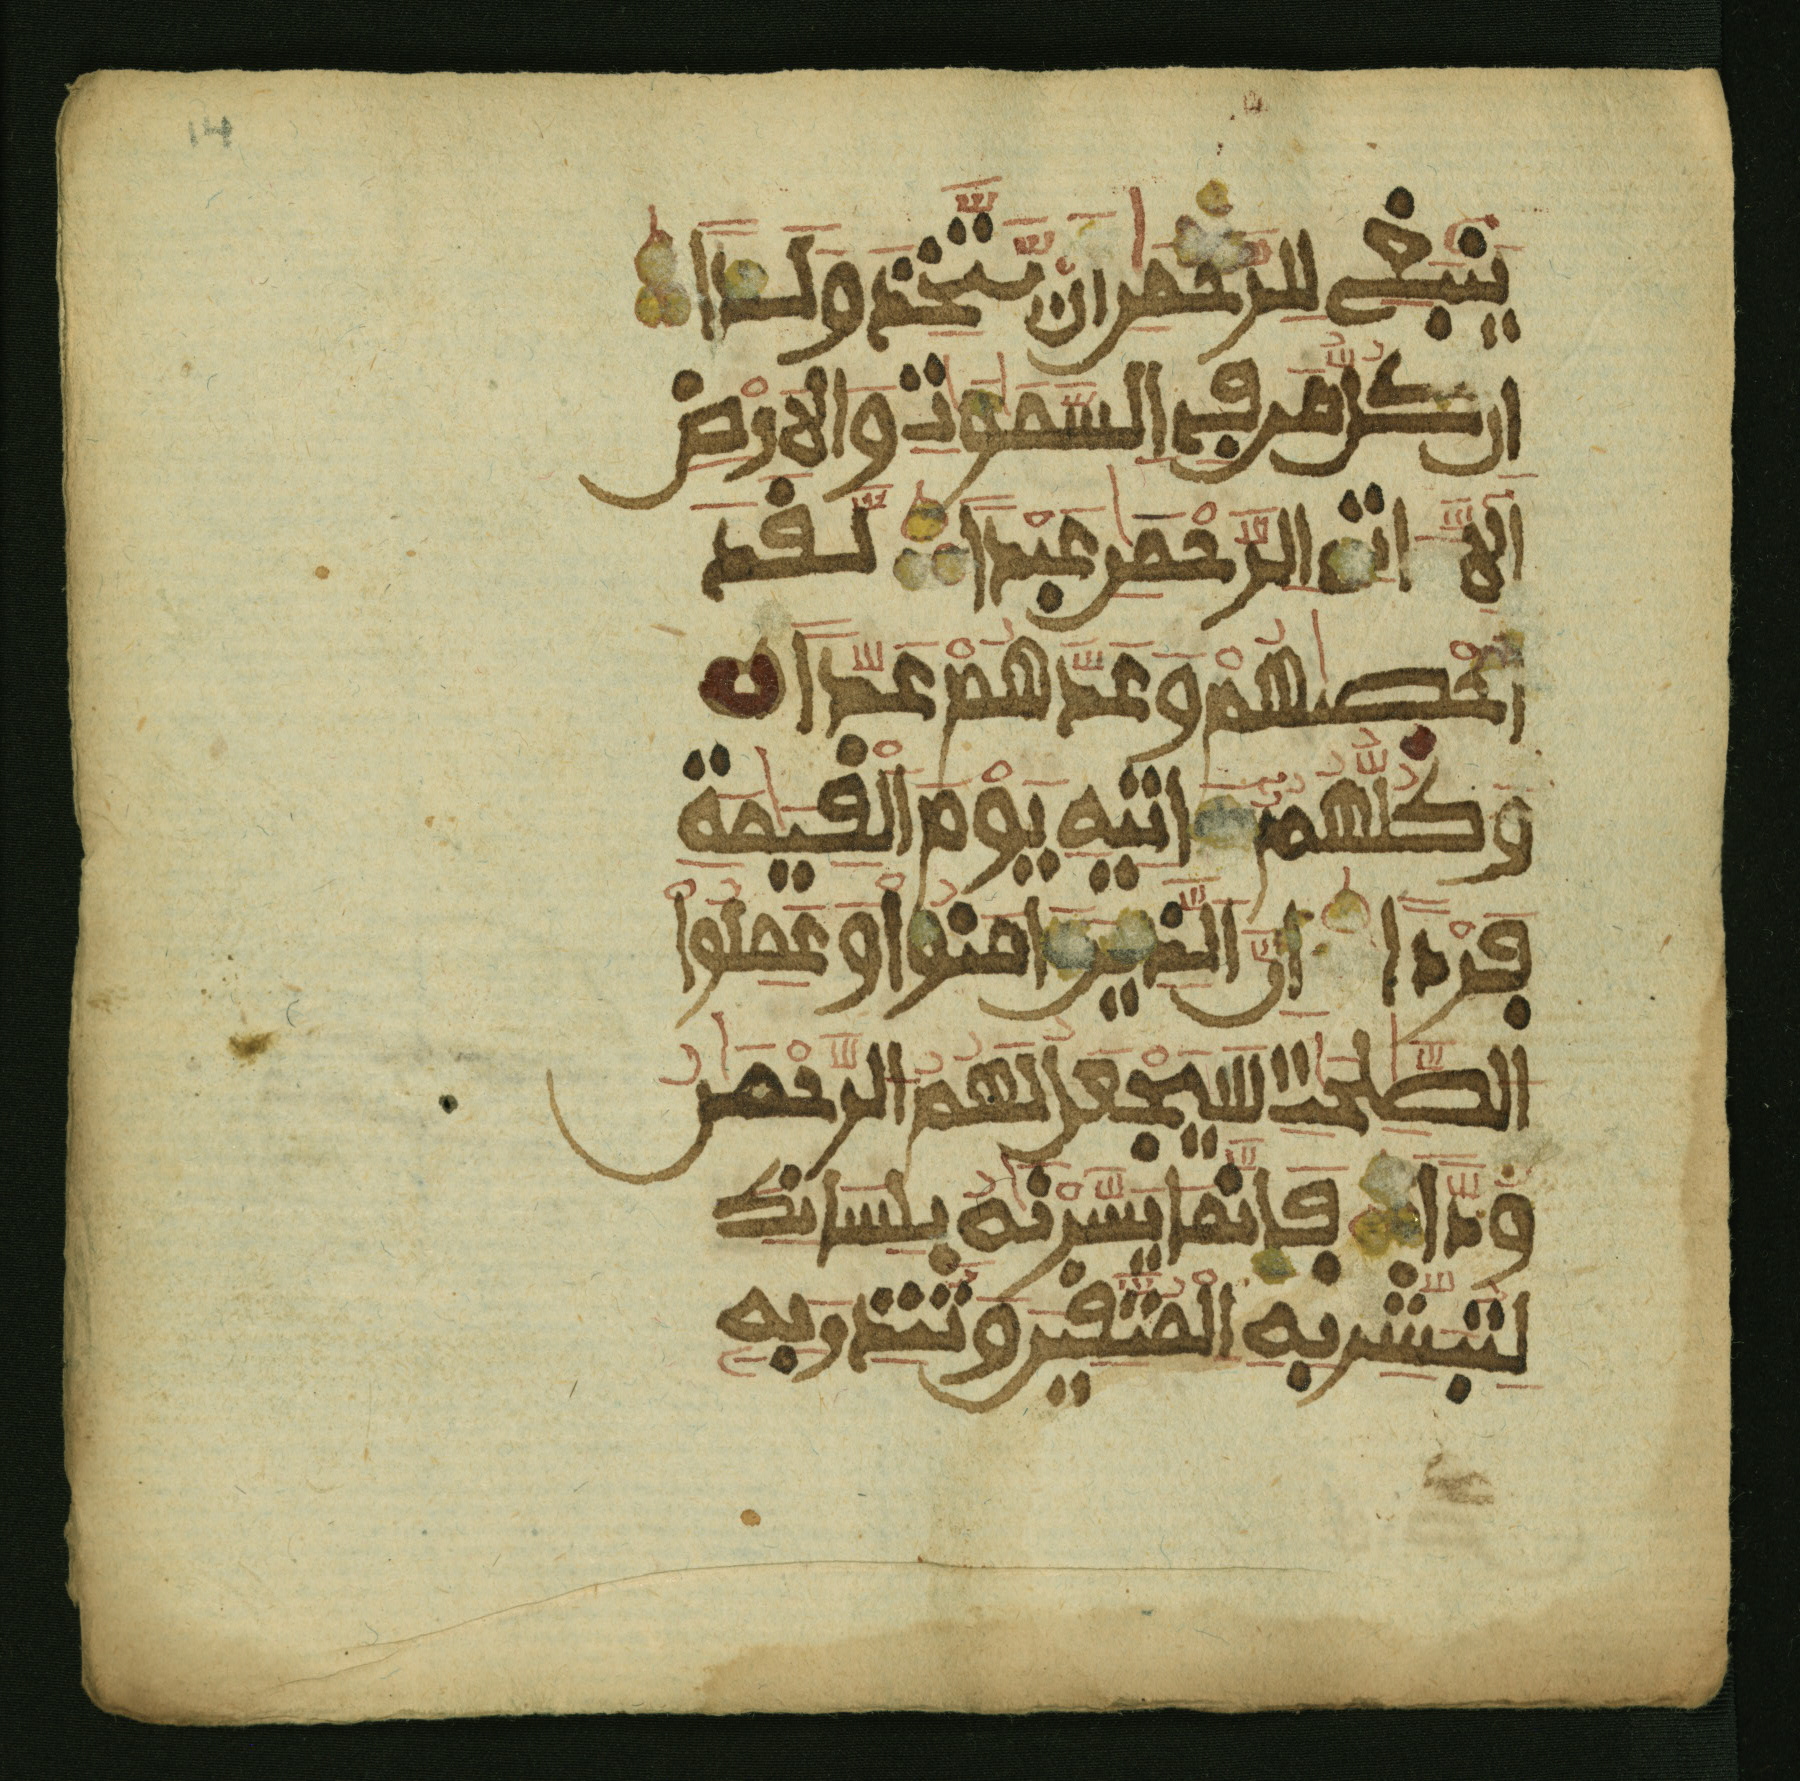 14
ينبغى للرحمن ان يتخذ ولدا
ان كل من في السموت والارض
الا اتى الرحمن عبدا لقد
احصيهم وعدهم عدا
وكلهم اتيه يوم القيمة
فردا ان الذين امنوا وعملوا
الصلحت سيجعل لهم الرحمن
ودا فانما يسرنه بلسانك
لتبشر به المتقين وتنذر به